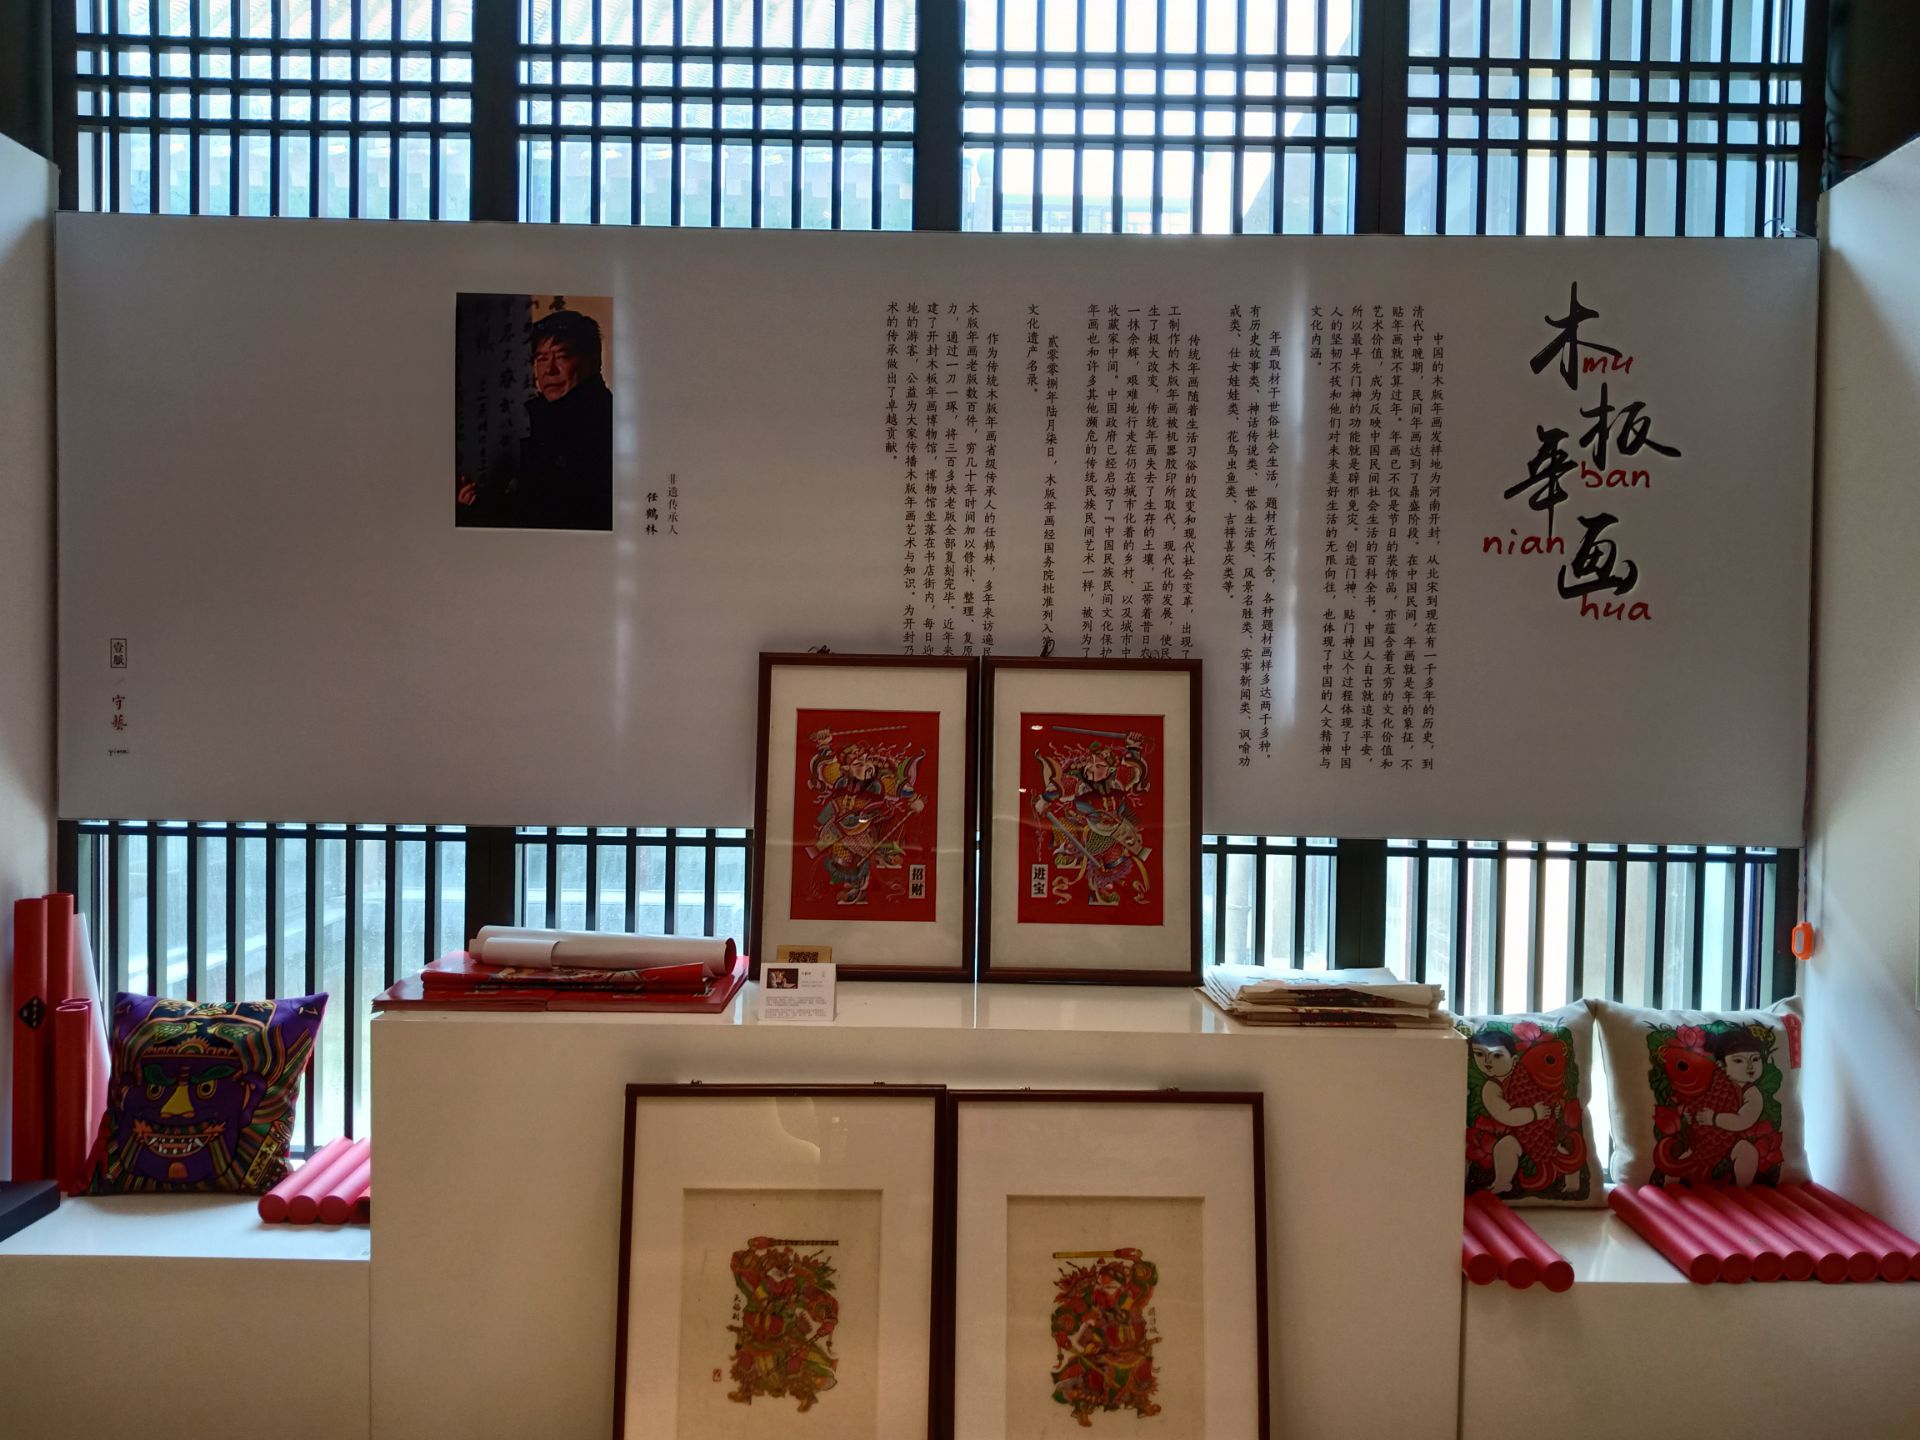 木板年画
mu
ban
nian
hua
中国的木版年画发祥地为河南开封，从北宋到现在有一千多年的历史，到
清代中晚期，民间年画达到了鼎盛阶段。在中国民间，年画就是年的象征，不
贴年画就不算过年。年画已不仅是节日的装饰品，亦蕴含着无穷的文化价值和
艺术价值，成为反映中国民间社会生活的百科全书。中国人自古就追求平安，
所以最早先门神的功能就是辟邪免灾。创造门神、贴门神这个过程体现了中国
人的坚韧不拔和他们对未来美好生活的无限向往，也体现了中国的人文精神与
文化内涵。
年画取材于世俗社会生活，题材无所不含，各种题材画样多达两千多种。
有历史故事类、神话传说类、世俗生活类、风景名胜类、实事新闻类、讽喻劝
戒类、仕女娃娃类、花鸟虫鱼类、吉祥喜庆类等。
传统年画随着生活习俗的改变和现代社会变革，出现了
工制作的木版年画被机器胶印所取代，现代化的发展，使民
生了极大改变，传统年画失去了生存的土壤，正带着昔日农
一抹余辉，艰难地行走在仍在城市化着的乡村、以及城市中
收藏家中间。中国政府已经启动了『中国民族民间文化保护
年画也和许多其他濒危的传统民族民间艺术一样，被列为了
贰零零捌年陆月柒日，木版年画经国务院批准列入
文化遗产名录。
作为传统木版年画省级传承人的任鹤林，多年来访遍民
木版年画老版数百件，穷几十年时间加以修补、整理、复原
力，通过一刀一琢，将三百多块老版全部复刻完毕。近年来
建了开封木板年画博物馆，博物馆坐落在书店街内，每日迎
地的游客，公益为大家传播木版年画艺术与知识。为开封乃
术的传承做出了卓越贡献。
非遗传承人
任鹤林
壹脈
守藝
yimai
招财
进宝